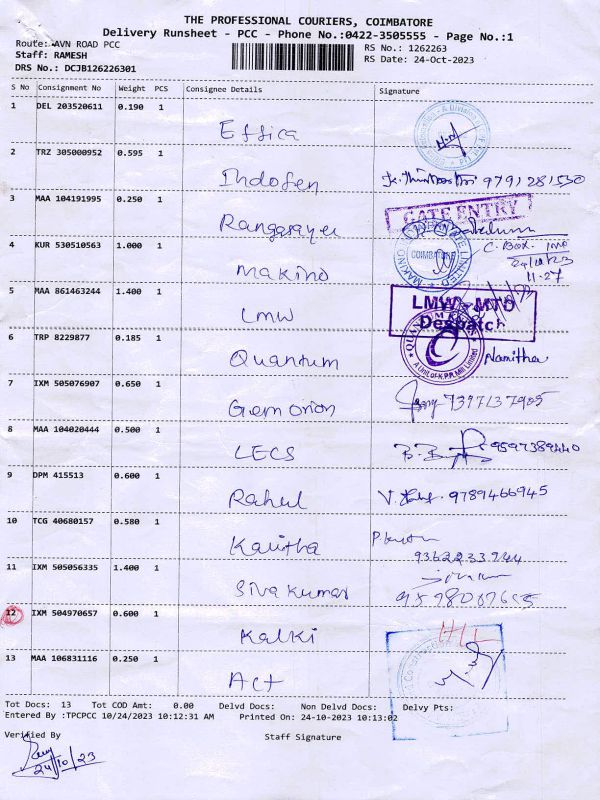 THE PROFESSIONAL COURIERS, COIMBATORE
Delivery Runsheet - PCC - Phone No.:0422-3505555 - Page No.:1
Route: AVN ROAD PCC
Staff: RAMESH
DRS No.: DCJB126226301
RS No.: 1262263
RS Date: 24-Oct-2023
S No Consignment No Weight PCS Consignee Details Signature
1 DEL 203520611 0.190 1 Effica
2 TRZ 305000952 0.595 1 Indofen 9791281530
3 MAA 104191995 0.250 1 Rangarayer
GATE ENTRY
4 KUR 530510563 1.000 1 Makino COIMBATORE
C. Box. 
24/10/23
11.27
5 MAA 861463244 1.400 1 LMW
LMW-MTD
Despatch
6 TRP 8229877 0.185 1 Quantum Namitha
A Unit of K.P.R. Mill Limited
7 IXM 505076907 0.650 1 Gem orion 7397137985
8 MAA 104020444 0.500 1 LECS 9597389440
9 DPM 415513 0.600 1 Rahul 9789466945
10 TCG 40680157 0.580 1 Kavitha
11 IXM 505056335 1.400 1 Siva kumar
12 IXM 504970657 0.600 1 Kalki
13 MAA 106831116 0.250 1 Act
Tot Docs: 13 Tot COD Amt: 0.00 Delvd Docs: Non Delvd Docs: Delvy Pts:
Entered By :TPCPCC 10/24/2023 10:12:31 AM Printed On: 24-10-2023 10:13:02
Verified By Staff Signature
24/10/23